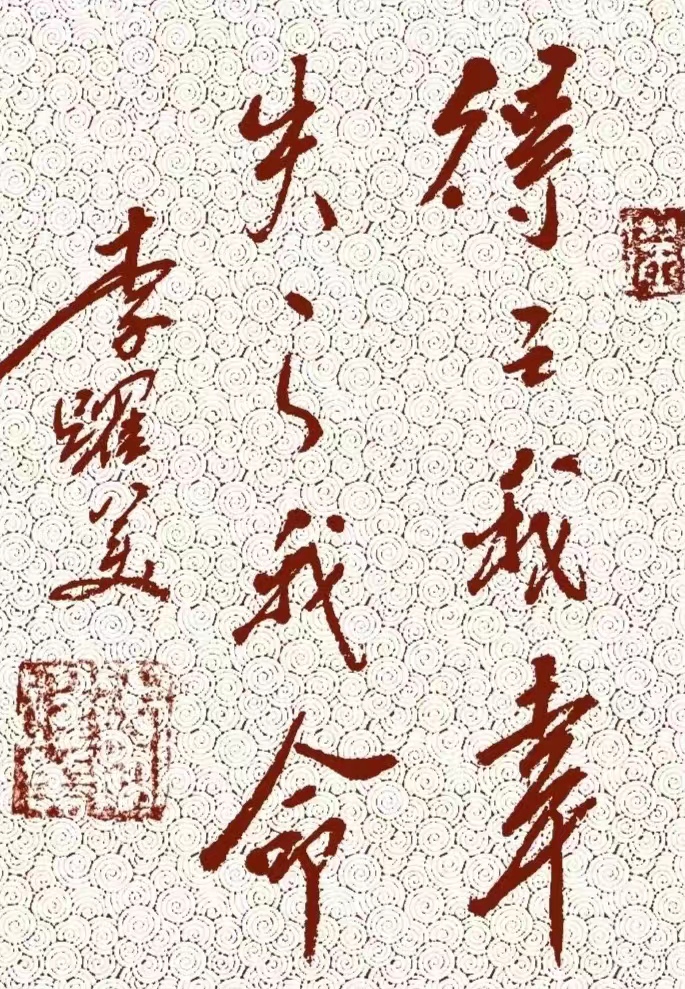 得之我幸
失之我命
李躍美